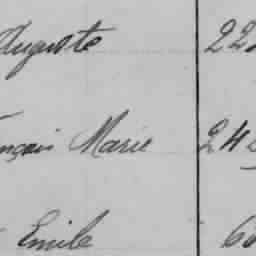 Auguste 22
nçois Marie 24
Emile 6